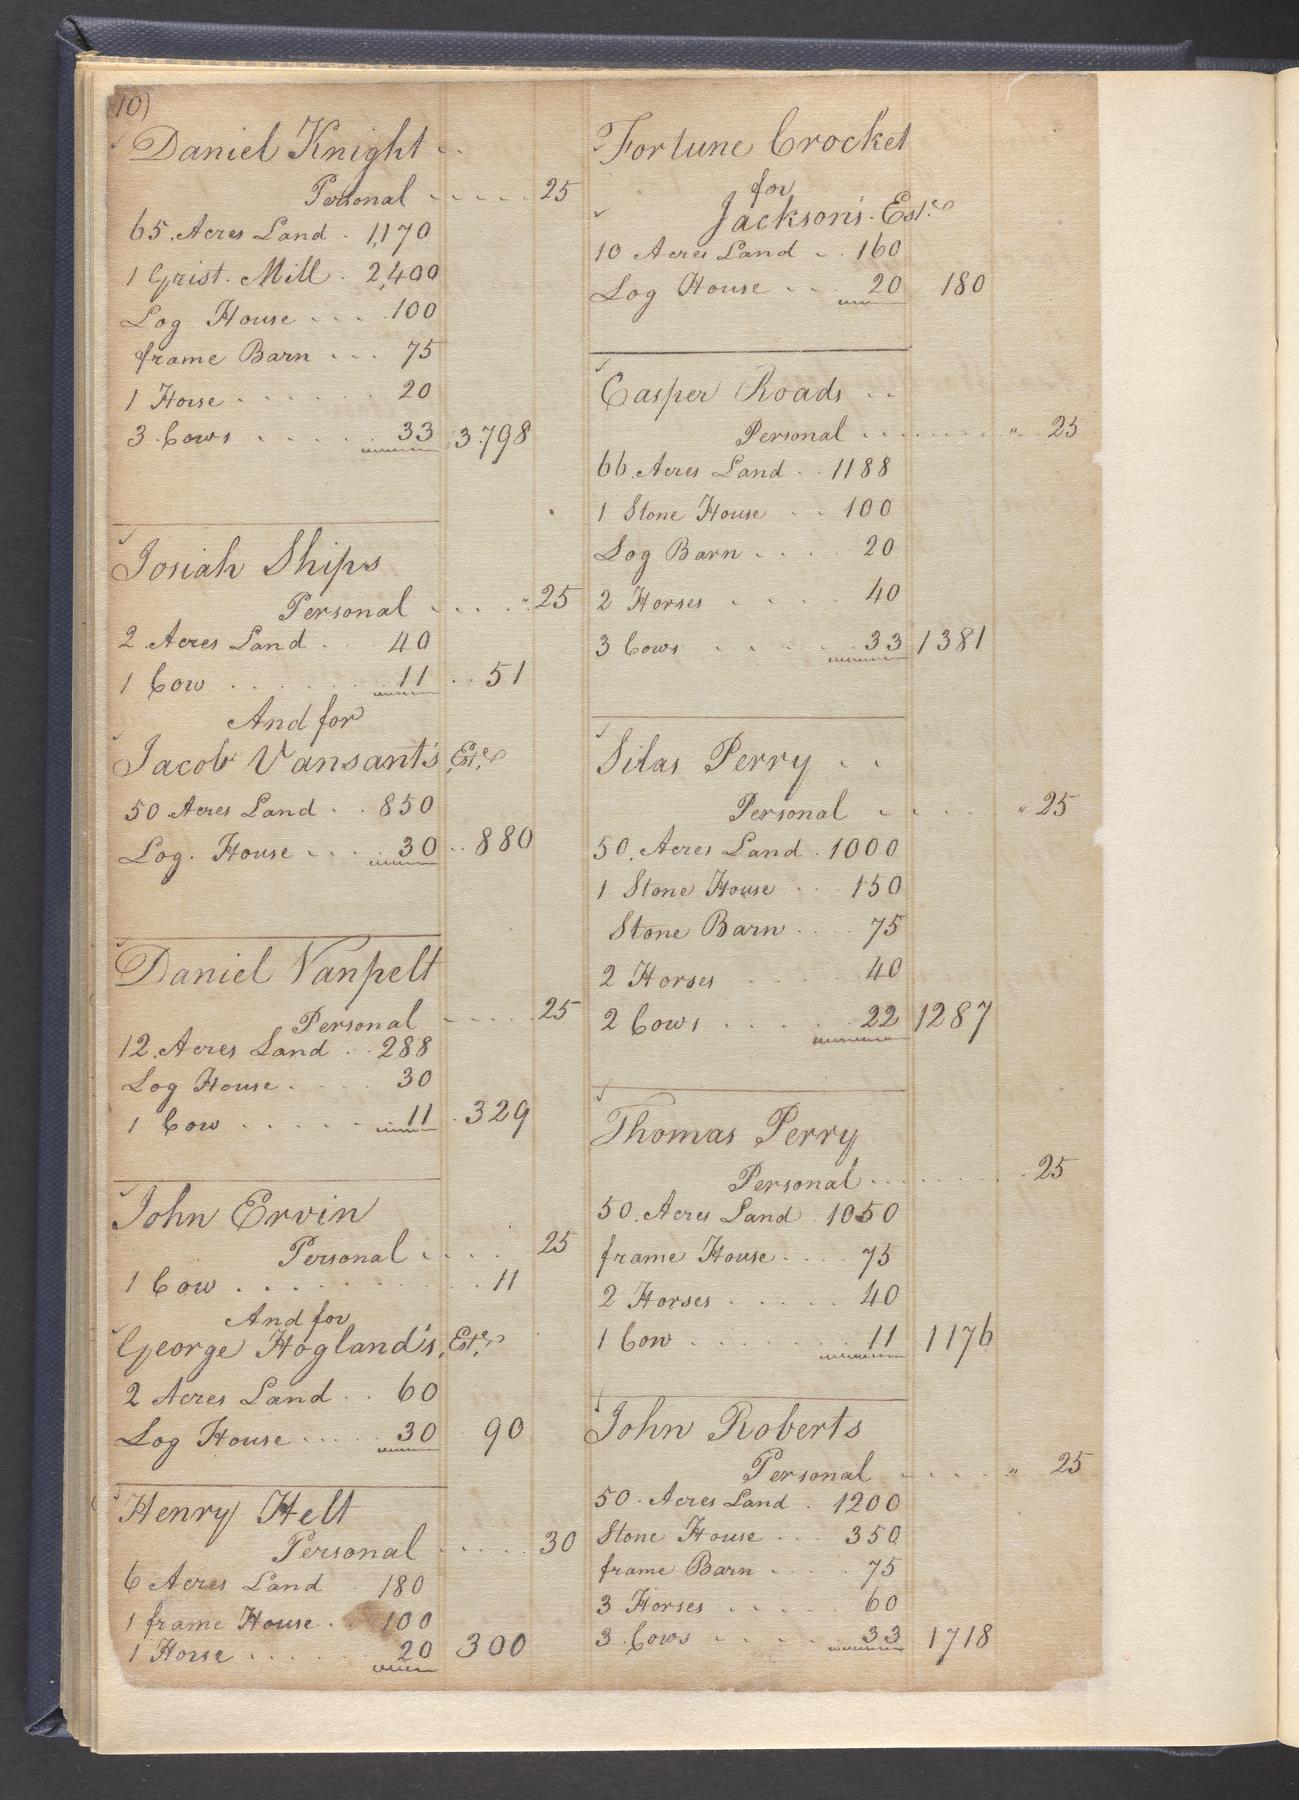 10)
Daniel Knight
Personal 25
65 Acres Land 1,170
1 Grist Mill 2,400
Log House 100
frame Barn 75
1 Horse 20
3 Cows 33 3798
Josiah Ships
Personal 25
2 Acres Land 40
1 Cow 11 51
And for
Jacob Vansant's Este
50 Acres Land 850
Log House 30 880
Daniel Vanpelt
Personal 25
12 Acres Land 288
Log House 30
1 Cow 11 329
John Ervin
Personal 25
1 Cow 11
And for
George Hogland's, Este
2 Acres Land 60
Log House 30 90
Henry Helt
Personal 30
6 Acres Land 180
1 frame House 100
1 Horse 20 300
Fortune Crocket
for
Jackson's Este
10 Acres Land 160
Log House 20 180
Casper Roads
Personal " 25
66 Acres Land 1188
1 Stone House 100
Log Barn 20
2 Horses 40
3 Cows 33 1381
Silas Perry
Personal " 25
50 Acres Land 1000
1 Stone House 150
Stone Barn 75
2 Horses 40
2 Cows 22 1287
Thomas Perry
Personal 25
50 Acres Land 1050
frame House 75
2 Horses 40
1 Cow 11 1176
John Roberts
Personal " 25
50 Acres Land 1200
Stone House 350
frame Barn 75
3 Horses 60
3 Cows 33 1718